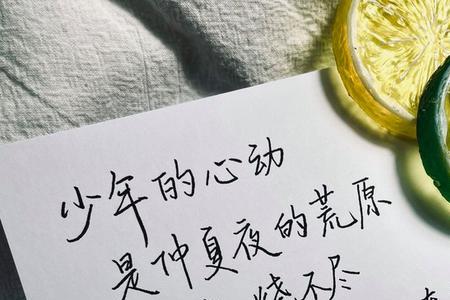 少年的心动
是仲夏夜的荒原
烧不尽